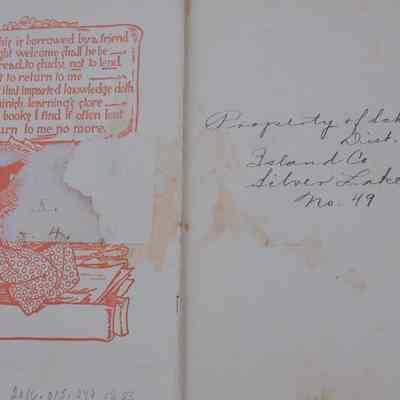 his is borrowed by a friend
ght welcome shall he be
read, to study, not to lend
t to return to me
that imparted knowledge doth
inish learning's store
books I find if often lent
urn to me no more.
4.
Property of Sch
Dist.
Island Co
Silver Lake
No. 49